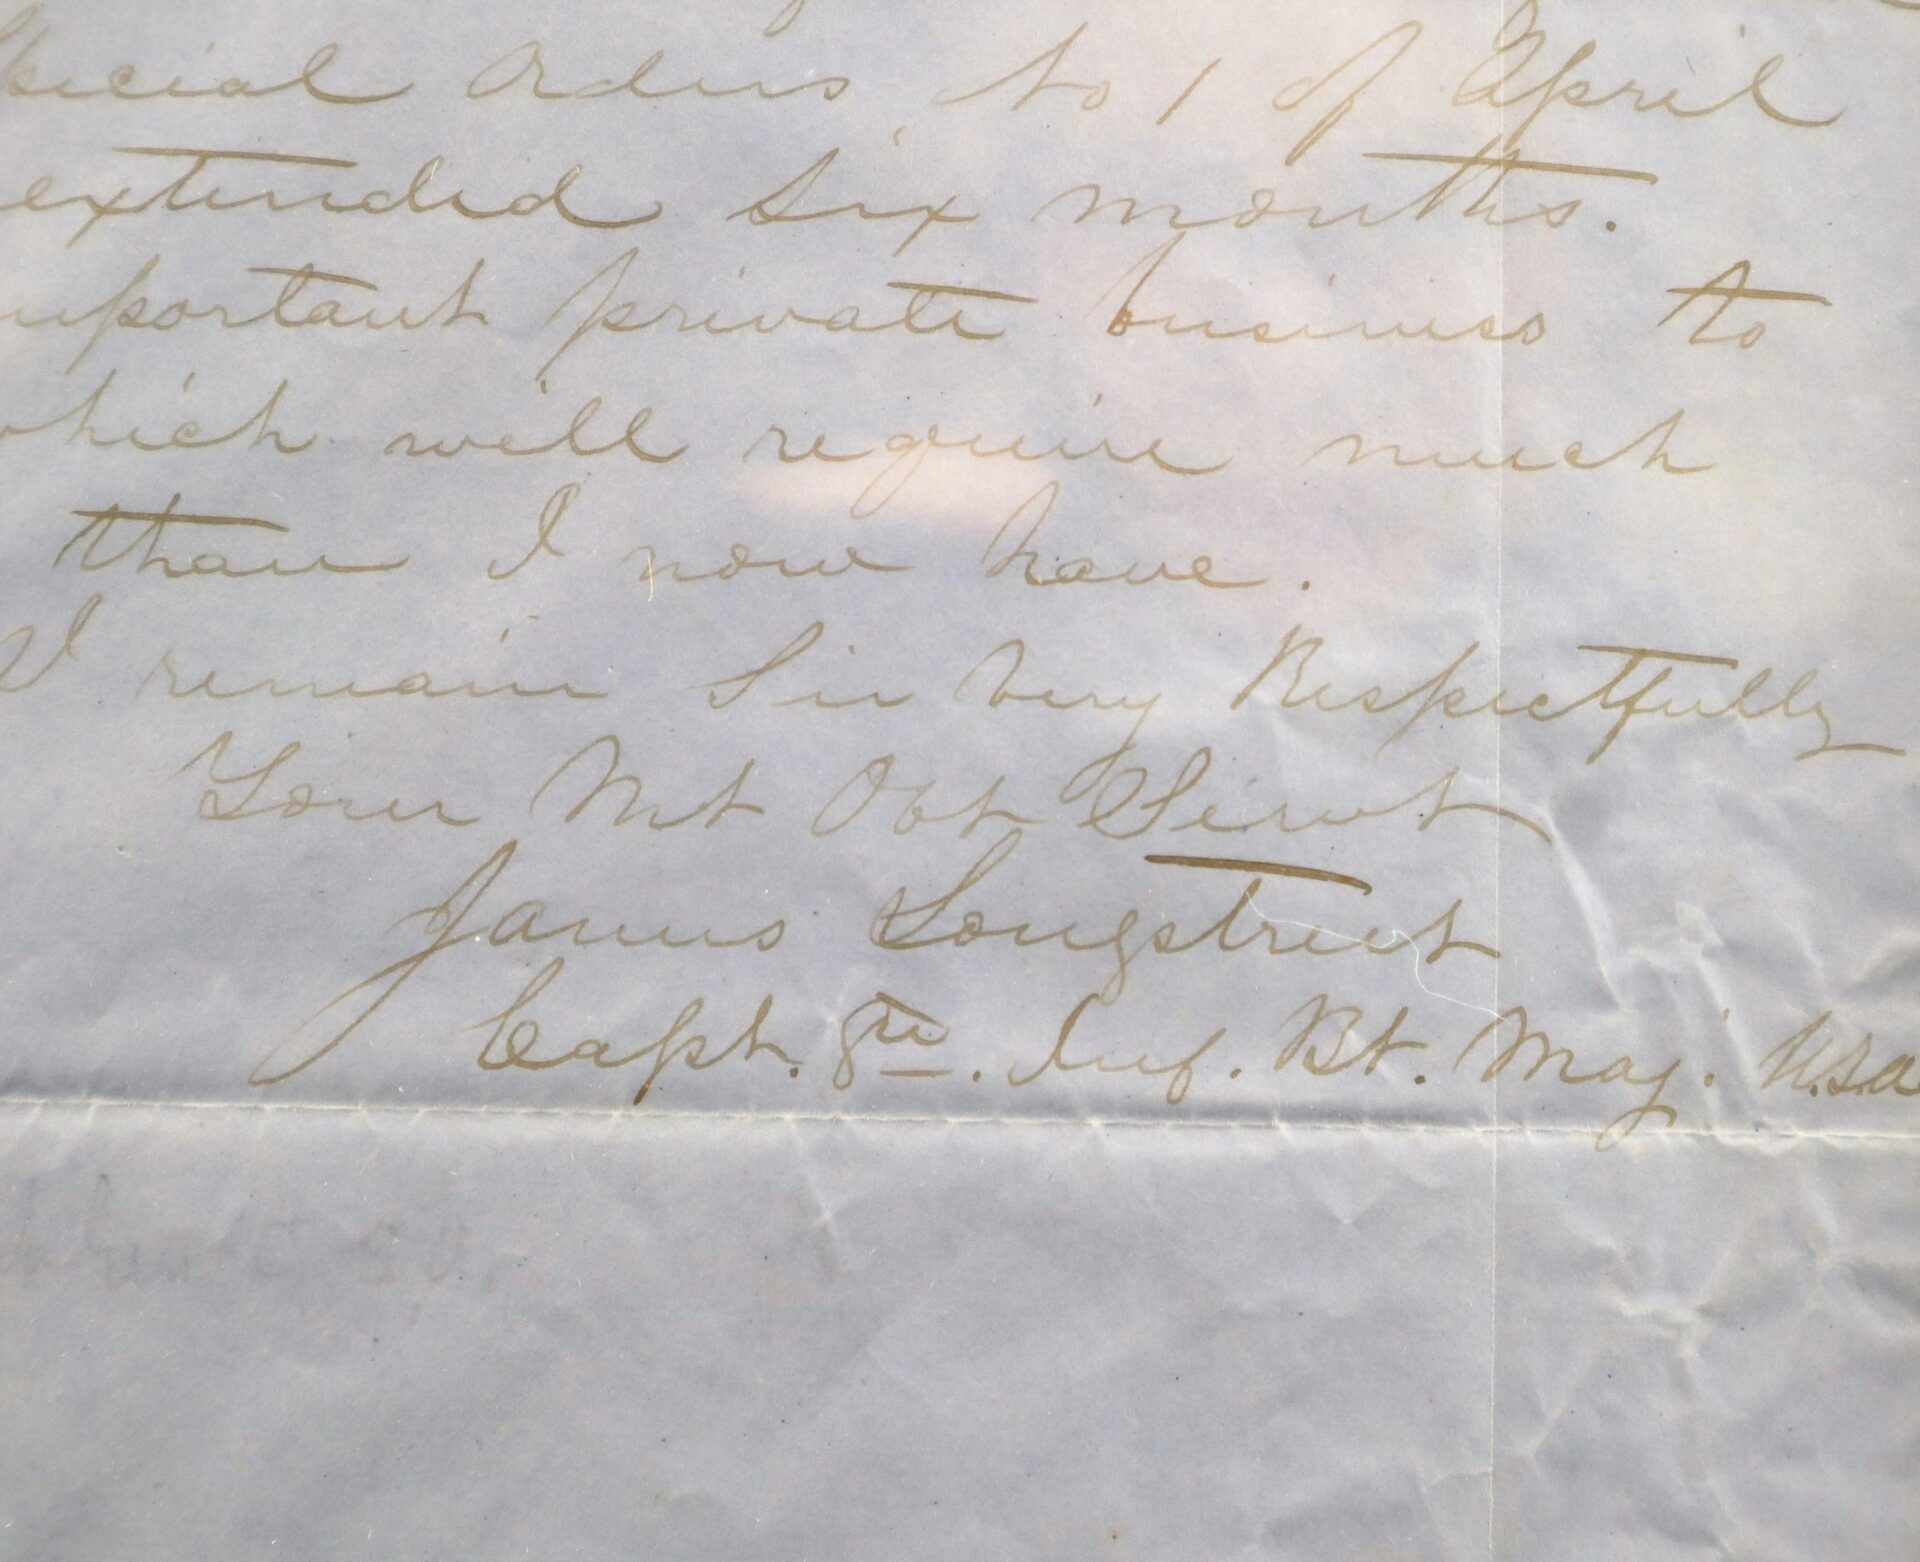 Special Orders No 1 of April
extended six months.
mportant private business to
which will require much
than I now have.
I remain Sir Very Respectfully
Your Mt Obt Servt
James Longstreet
Capt. 8th. Inf. Bt. Maj. U.S.A